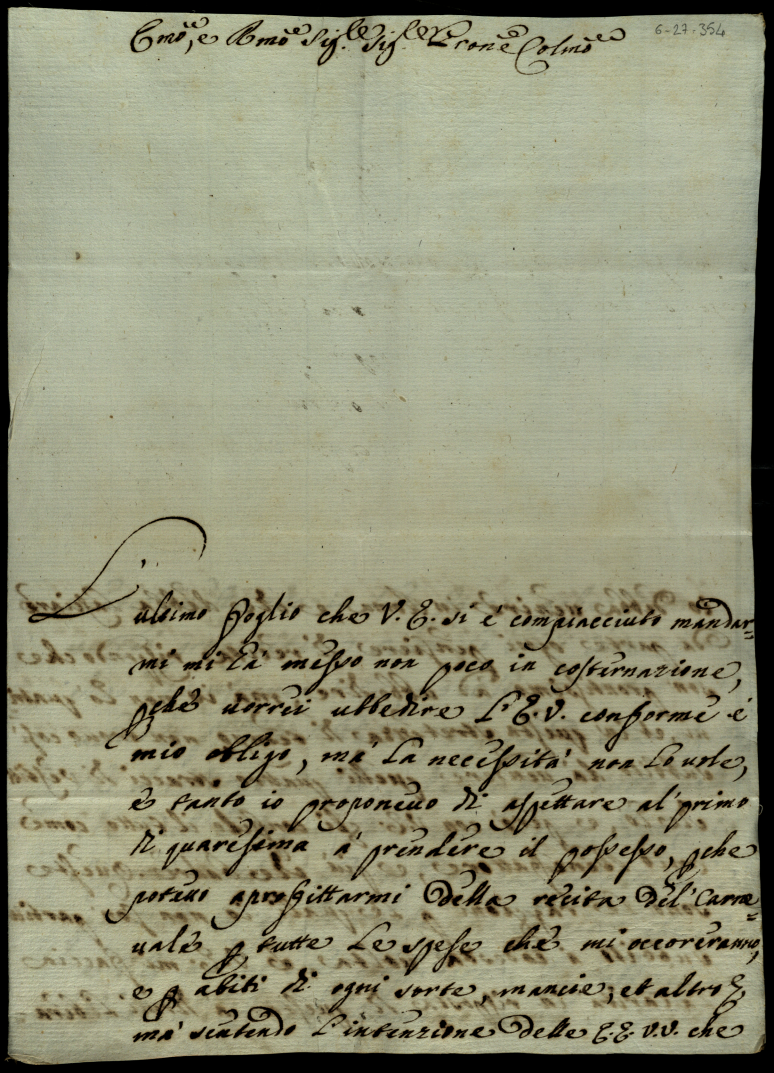 Emo, e Rmo Sig.re Sig.re Pron e Colmo
6-27-354
L'ultimo foglio che V. E. si é compiacciuto mandar=
mi mi ha messo non poco in costernazione,
pché vorrei ubbedire L'E. V. conforme é
mio obligo, má La necessitá non Lo uole,
é tanto io proponeuo di aspettare al primo
di quaresima á prendere il possesso, pche
poteuo aproffittarmi della recita del Carne=
uale p tutte Le spese che mi occoreranno,
e p abiti di ogni sorte, mancie, et altro
má sentendo L'intenzione delle E. E. V. V. che